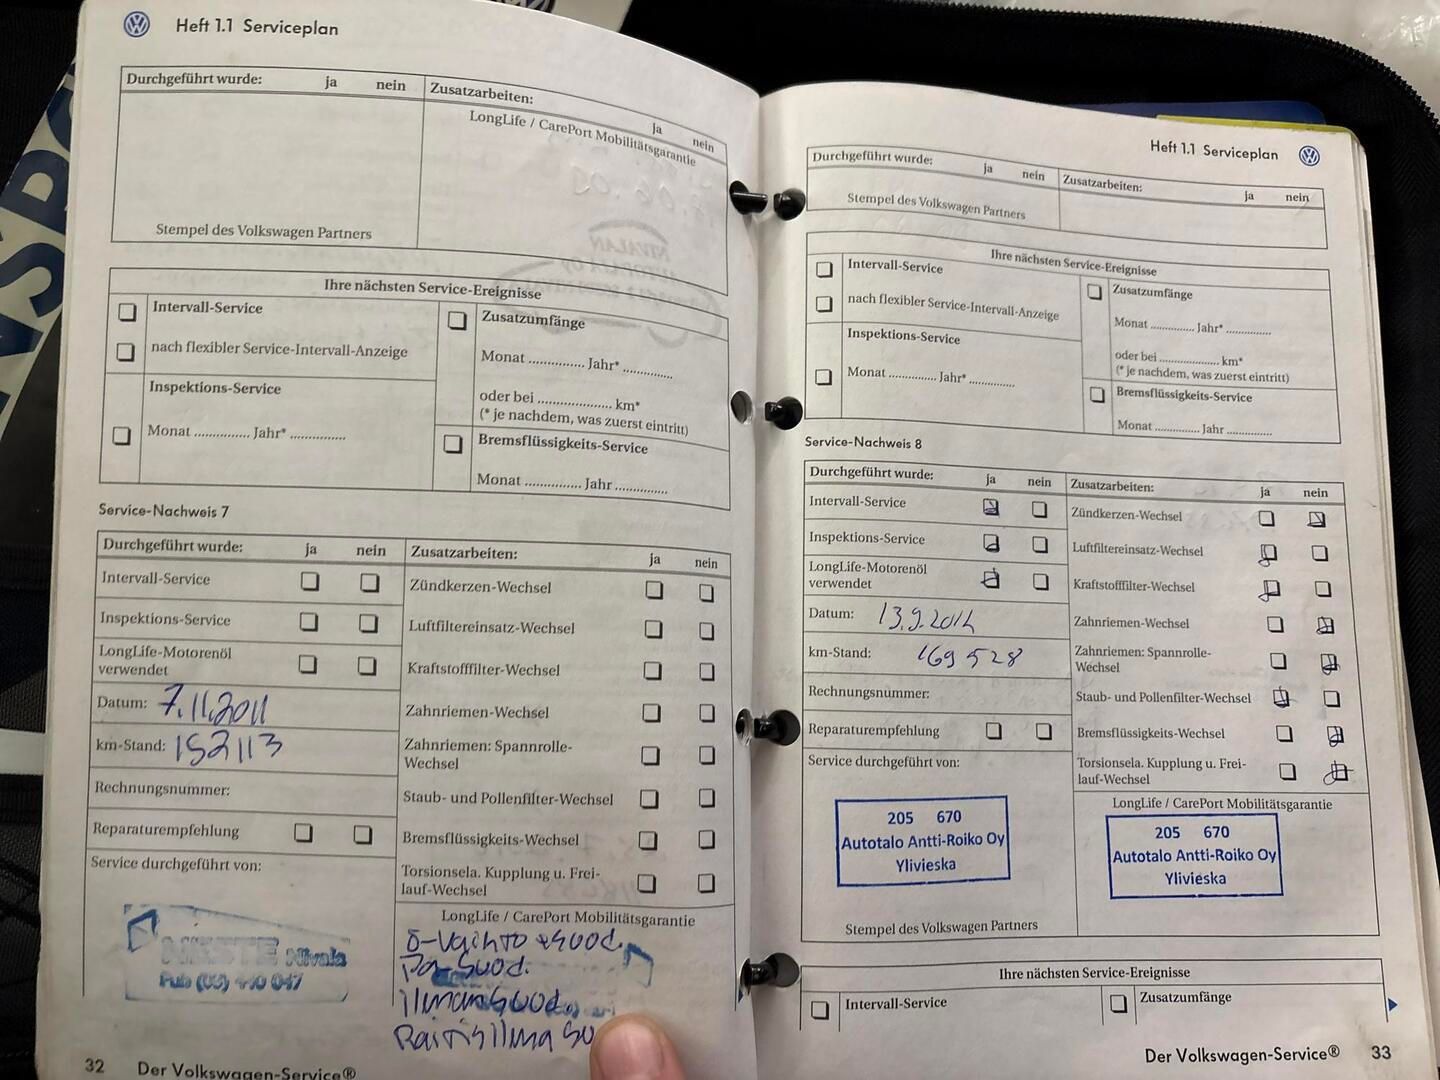 Heft 1.1 Serviceplan
Durchgeführt wurde: ja nein
Zusatzarbeiten: ja nein
LongLife / CarePort Mobilitätsgarantie
Stempel des Volkswagen Partners
Ihre nächsten Service-Ereignisse
Intervall-Service
nach flexibler Service-Intervall-Anzeige
Inspektions-Service
Monat .............. Jahr* ..............
Zusatzumfänge
Monat .............. Jahr* ..............
oder bei .................... km*
(* je nachdem, was zuerst eintritt)
Bremsflüssigkeits-Service
Monat .............. Jahr ..............
Service-Nachweis 7
Durchgeführt wurde: ja nein
Intervall-Service
Inspektions-Service
LongLife-Motorenöl
verwendet
Datum: 7.11.2011
km-Stand: 152113
Rechnungsnummer:
Reparaturempfehlung
Service durchgeführt von:
NESTE Nivala
Zusatzarbeiten: ja nein
Zündkerzen-Wechsel
Luftfiltereinsatz-Wechsel
Kraftstofffilter-Wechsel
Zahnriemen-Wechsel
Zahnriemen: Spannrolle-
Wechsel
Staub- und Pollenfilter-Wechsel
Bremsflüssigkeits-Wechsel
Torsionsela. Kupplung u. Frei-
lauf-Wechsel
LongLife / CarePort Mobilitätsgarantie
Ö-Vaihto + Suod.
Pa Suod.
ilman Suod.
Raitis ilma Suo
32 Der Volkswagen-Service®
Heft 1.1 Serviceplan
Durchgeführt wurde: ja nein
Zusatzarbeiten: ja nein
Stempel des Volkswagen Partners
Ihre nächsten Service-Ereignisse
Intervall-Service
nach flexibler Service-Intervall-Anzeige
Inspektions-Service
Monat .............. Jahr* ..............
Zusatzumfänge
Monat .............. Jahr* ..............
oder bei .................... km*
(* je nachdem, was zuerst eintritt)
Bremsflüssigkeits-Service
Monat .............. Jahr ..............
Service-Nachweis 8
Durchgeführt wurde: ja nein
Intervall-Service
Inspektions-Service
LongLife-Motorenöl
verwendet
Datum: 13.9.2012
km-Stand: 169 528
Rechnungsnummer:
Reparaturempfehlung
Service durchgeführt von:
205 670
Autotalo Antti-Roiko Oy
Ylivieska
Stempel des Volkswagen Partners
Zusatzarbeiten: ja nein
Zündkerzen-Wechsel
Luftfiltereinsatz-Wechsel
Kraftstofffilter-Wechsel
Zahnriemen-Wechsel
Zahnriemen: Spannrolle-
Wechsel
Staub- und Pollenfilter-Wechsel
Bremsflüssigkeits-Wechsel
Torsionsela. Kupplung u. Frei-
lauf-Wechsel
LongLife / CarePort Mobilitätsgarantie
205 670
Autotalo Antti-Roiko Oy
Ylivieska
Ihre nächsten Service-Ereignisse
Intervall-Service
Zusatzumfänge
Der Volkswagen-Service® 33